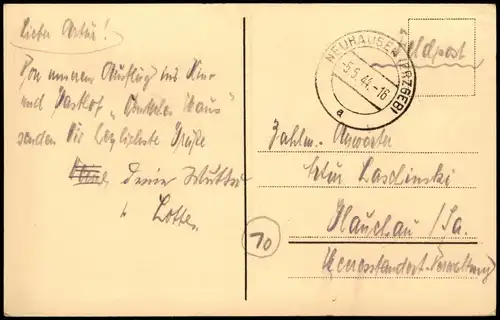 Lieber Artur!
Von unserem Ausflug ins Kino
und Gasthof „ Haus"
senden Dir herzlichste Grüße
Deine Mutter
u. Lotte.
Feldpost
NEUHAUSEN (ERZGEB)
-5.5.44.-16
a
Zahlm. Anwärter
Artur Laschinski
Glauchau /Sa.
Heeresstandort-Verwaltung
10